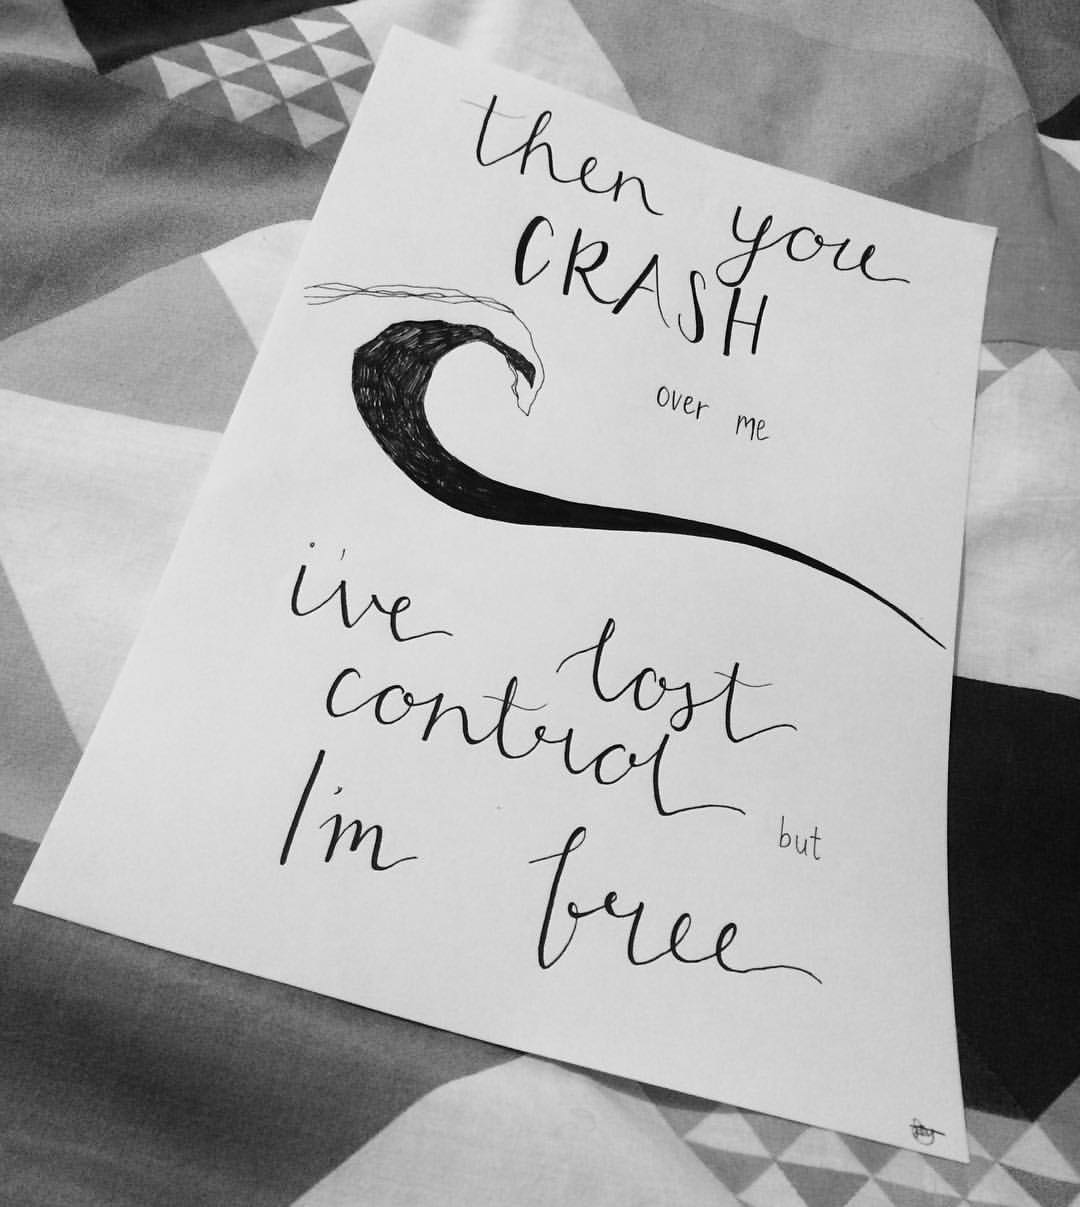 then you
CRASH
over me
i've lost
control
but
I'm free